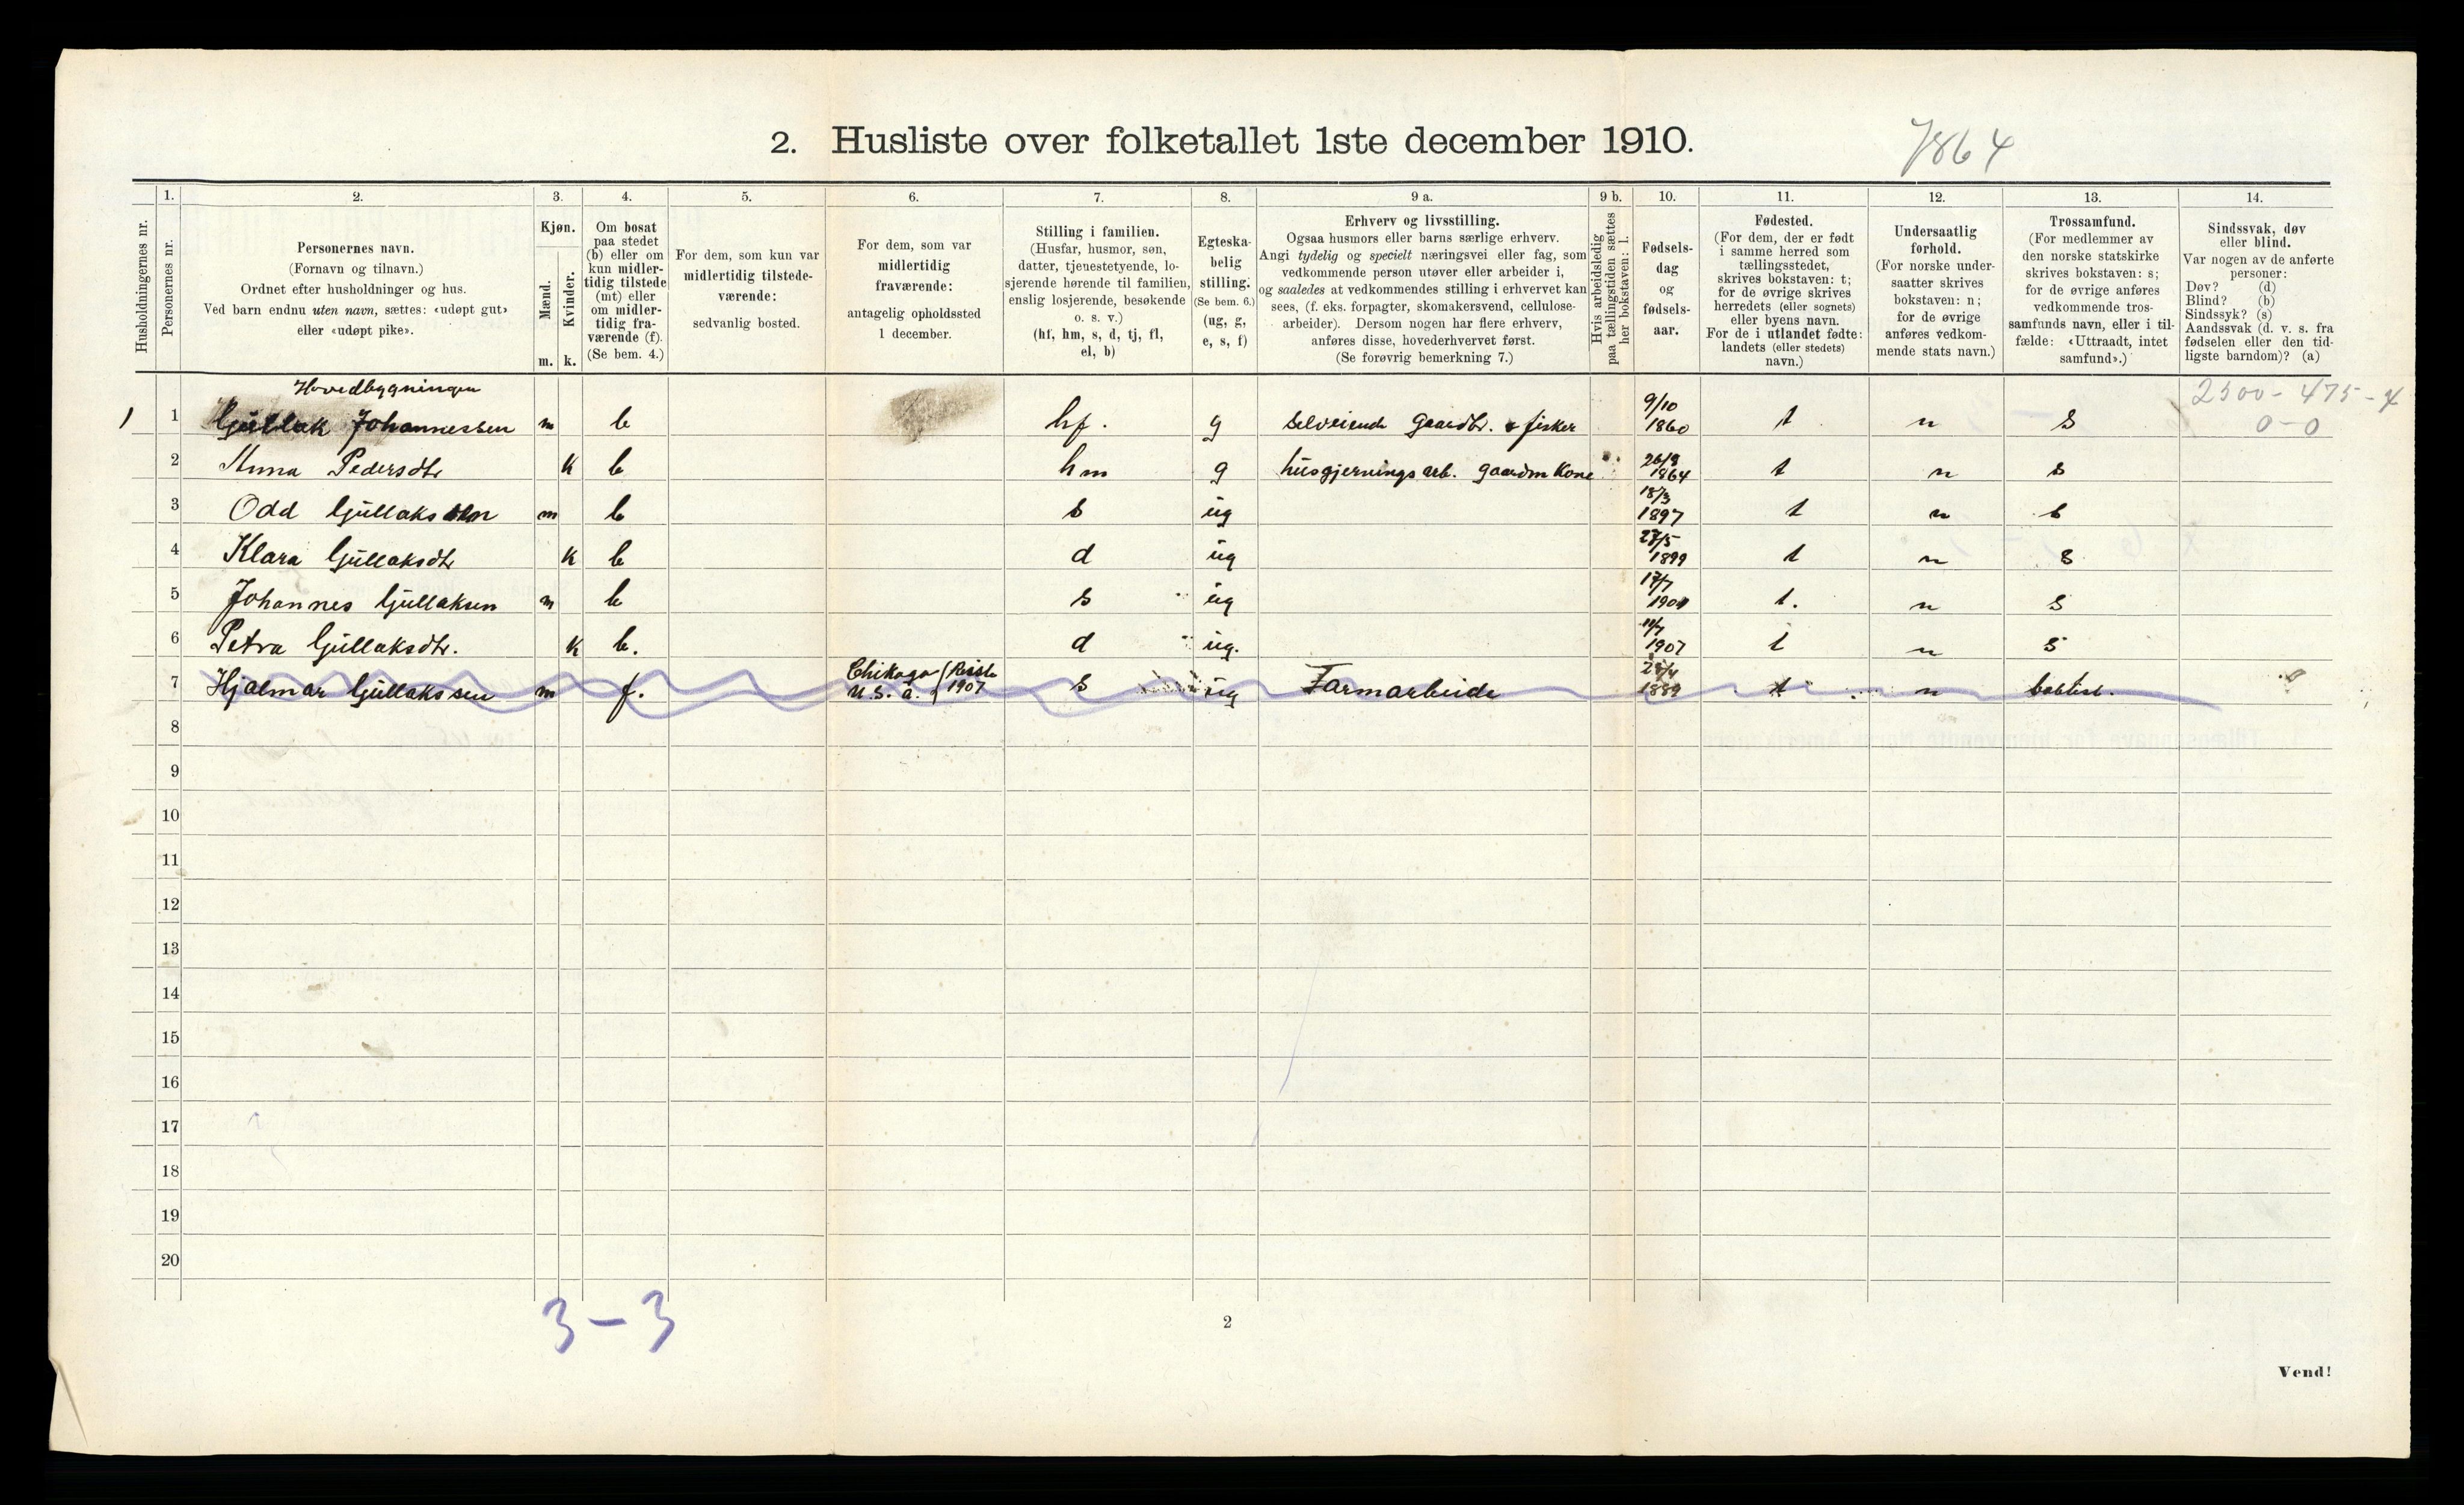 2. Husliste over folketallet 1ste december 1910.
7864
Husholdningernes nr.
1.
Personernes nr.
2.
Personernes navn.
(Fornavn og tilnavn.)
Ordnet efter husholdninger og hus.
Ved barn endnu uten navn, sættes: «udøpt gut»
eller «udøpt pike».
3.
Kjøn.
Mænd.
Kvinder.
m. k.
4.
Om bosat
paa stedet
(b) eller om
kun midler-
tidig tilstede
(mt) eller
om midler-
tidig fra-
værende (f).
(Se bem. 4.)
5.
For dem, som kun var
midlertidig tilstede-
værende:
sedvanlig bosted.
6.
For dem, som var
midlertidig
fraværende:
antagelig opholdssted
1 december.
7.
Stilling i familien.
(Husfar, husmor, søn,
datter, tjenestetyende, lo-
sjerende hørende til familien,
enslig losjerende, besøkende
o. s. v.)
(hf, hm, s, d, tj, fl,
el, b)
8.
Egteska-
belig
stilling.
(Se bem. 6.)
(ug, g,
e, s, f)
9 a.
Erhverv og livsstilling.
Ogsaa husmors eller barns særlige erhverv.
Angi tydelig og specielt næringsvei eller fag, som
vedkommende person utøver eller arbeider i,
og saaledes at vedkommendes stilling i erhvervet kan
sees, (f. eks. forpagter, skomakersvend, cellulose-
arbeider). Dersom nogen har flere erhverv,
anføres disse, hovederhvervet først.
(Se forøvrig bemerkning 7.)
9 b.
Hvis arbeidsledig
paa tællingstiden sættes
her bokstaven: l.
10.
Fødsels-
dag
og
fødsels-
aar.
11.
Fødested.
(For dem, der er født
i samme herred som
tællingsstedet,
skrives bokstaven: t;
for de øvrige skrives
herredets (eller sognets)
eller byens navn.
For de i utlandet fødte:
landets (eller stedets)
navn.)
12.
Undersaatlig
forhold.
(For norske under-
saatter skrives
bokstaven: n;
for de øvrige
anføres vedkom-
mende stats navn.)
13.
Trossamfund.
(For medlemmer av
den norske statskirke
skrives bokstaven: s;
for de øvrige anføres
vedkommende tros-
samfunds navn, eller i til-
fælde: «Uttraadt, intet
samfund».)
14.
Sindssvak, døv
eller blind.
Var nogen av de anførte
personer:
Døv? (d)
Blind? (b)
Sindssyk? (s)
Aandssvak (d. v. s. fra
fødselen eller den tid-
ligste barndom)? (a)
Hovedbygningen
2500 - 475 - 4
0 - 0
1 1 Gjullak Johannessen m b hf. g selveiende gaardbr. & fisker 9/10 1860 t n s
2 Anna Pedersdtr k b hm g husgjernings arb. gaardm kone 26/8 1864 t n s
3 Odd Gjullaksen m b s ug 18/3 1897 t n s
4 Klara Gjullaksdtr k b d ug 27/5 1899 t n s
5 Johannes Gjullaksen m b s ug 17/7 1901 t. n s
6 Petra Gjullaksdtr. k b. d ug. 11/7 1907 t n s
7 Hjalmar Gjullakssen m f. Chikago U.S.a. (Reiste 1907 s ug Farmarbeide 1889 t n babtist.
8
9
10
11
12
13
14
15
16
17
18
19
20
3 - 3
2
Vend!